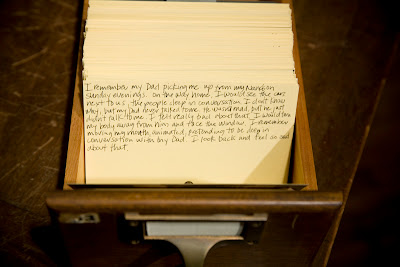 I remember my Dad picking me up from my Nana's on
Sunday evenings. on the way home, I would see the cars
next to us, the people deep in conversation. I don't know
why, but my Dad never talked to me. He wasn't mad, but he just
didn't talk to me. I felt really bad about that. I would turn
my body away from him and face the window. I remember
moving my mouth, animated, pretending to be deep in
conversation with my Dad. I look back and feel so sad
about that.